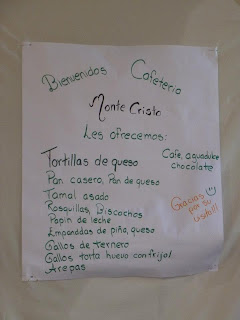 Bienvenidos Cafeteria
Monte Cristo
Les ofrecemos:
Tortillas de queso
Café, aguadulce
chocolate
Pan casero, Pan de queso
Tamal asado
Rosquillas, Biscochos
Popin de leche
Empanadas de piña, queso
Gallos de ternero
Gallos torta huevo con frijol
Arepas
Gracias
por su
visita!!!